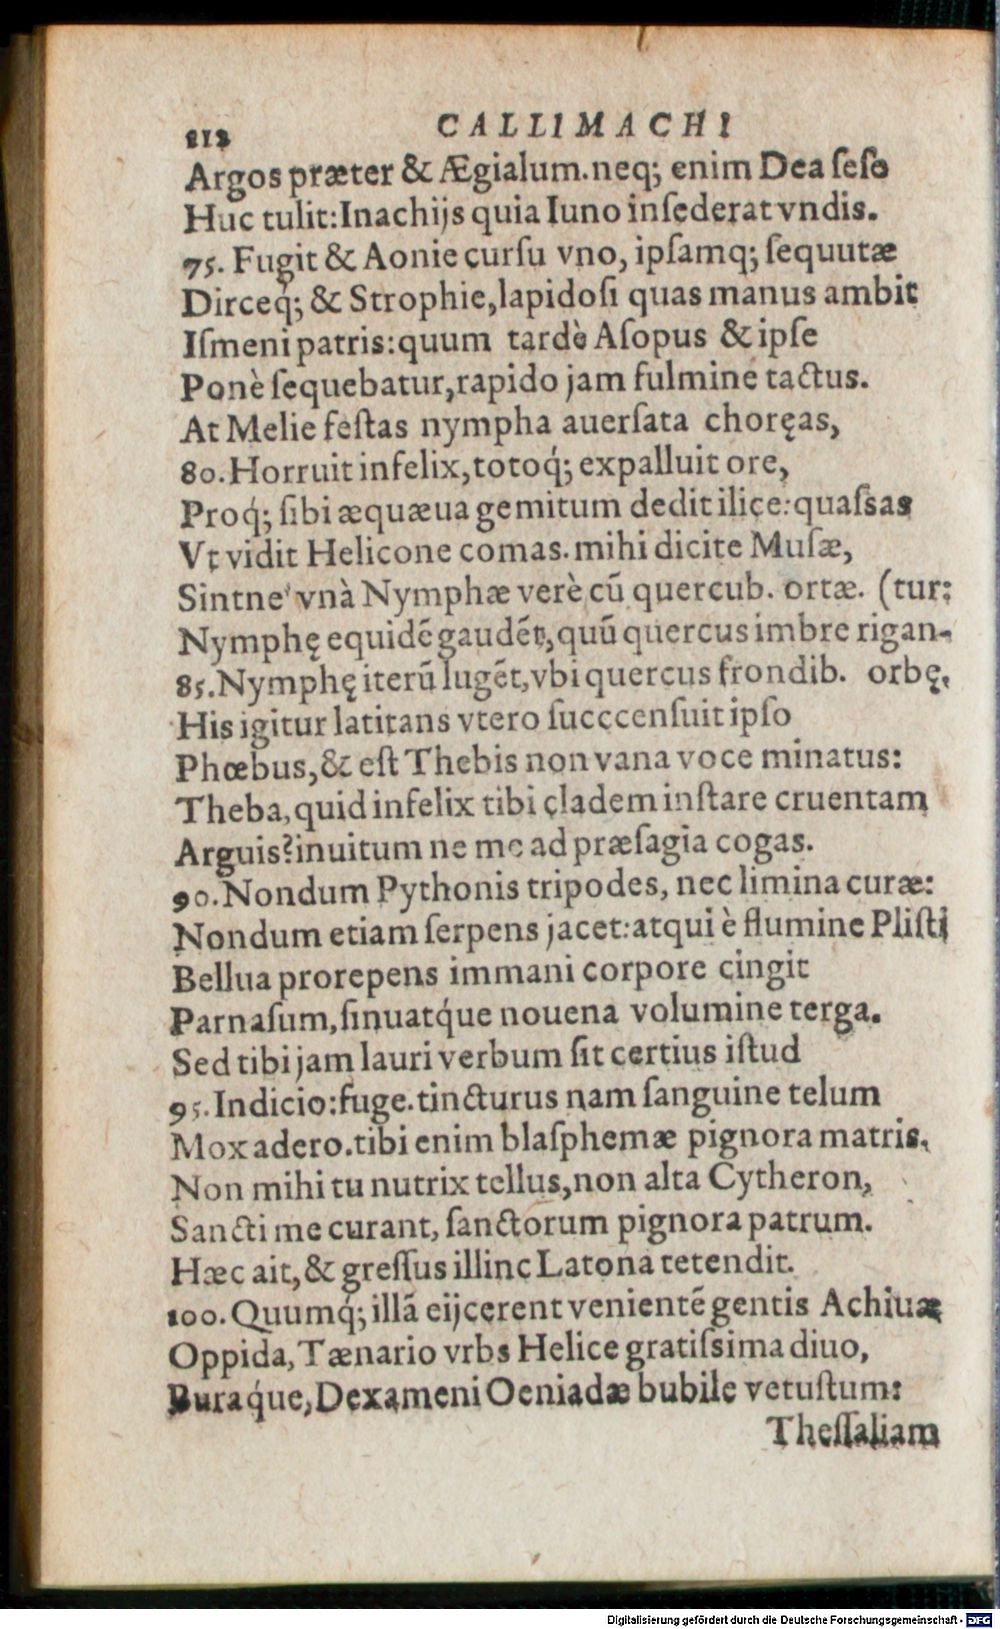 112
CALLIMACHI
Argos præter & Ægialum. neq; enim Dea ſeſe
Huc tulit: Inachijs quia Iuno inſederat vndis.
75. Fugit & Aonie curſu vno, ipſamq; ſequutæ
Dirceq́; & Strophie, lapidoſi quas manus ambit
Iſmeni patris: quum tardè Aſopus & ipſe
Ponè ſequebatur, rapido jam fulmine tactus.
At Melie feſtas nympha auerſata choręas,
80. Horruit infelix, totoq́; expalluit ore,
Proq́; ſibi æquæua gemitum dedit ilice: quaſſas
Vt vidit Helicone comas. mihi dicite Muſæ,
Sintne vnà Nymphæ verè cū quercub. ortæ. (tur:
Nymphę equidē gaudēt, quū quercus imbre rigan-
85. Nymphę iterū lugēt, vbi quercus frondib. orbę.
His igitur latitans vtero ſucccenſuit ipſo
Phœbus, & eſt Thebis non vana voce minatus:
Theba, quid infelix tibi cladem inſtare cruentam
Arguis? inuitum ne me ad præſagia cogas.
90. Nondum Pythonis tripodes, nec limina curæ:
Nondum etiam ſerpens jacet: atqui è flumine Pliſti
Bellua prorepens immani corpore cingit
Parnaſum, ſinuatq́ue nouena volumine terga.
Sed tibi jam lauri verbum ſit certius iſtud
95. Indicio: fuge. tincturus nam ſanguine telum
Mox adero. tibi enim blaſphemæ pignora matris.
Non mihi tu nutrix tellus, non alta Cytheron,
Sancti me curant, ſanctorum pignora patrum.
Hæc ait, & greſſus illinc Latona tetendit.
100. Quumq́; illā eijcerent venientē gentis Achiuæ
Oppida, Tænario vrbs Helice gratiſsima diuo,
Buraq́ue, Dexameni Oeniadæ bubile vetuſtum:
Theſſaliam
Digitalisierung gefördert durch die Deutsche Forschungsgemeinschaft - DFG